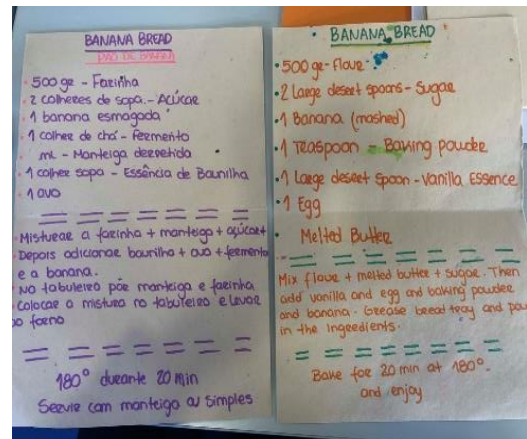 BANANA BREAD
PÃO DE BANANA
500 gr - Farinha
2 colheres de sopa - Açúcar
1 banana esmagada
1 colher de chá - Fermento
mL - Manteiga derretida
1 colher sopa - Essência de Baunilha
1 ovo
Misturar a farinha + manteiga + açúcar +
Depois adicionar baunilha + ovo + fermento
e a banana.
No tabuleiro pôe manteiga e farinha
Colocar a mistura no tabuleiro e levar
ao forno
180º durante 20 min
Servir com manteiga ou simples
BANANA BREAD
500 gr - Flour
2 Large desert spoons - Sugar
1 Banana (mashed)
1 Teaspoon - Baking powder
1 Large desert spoon - Vanilla Essence
1 Egg
Melted Butter
Mix flour + melted butter + sugar. Then
add vanilla and egg and baking powder
and banana. Grease bread tray and
in the ingredients.
Bake for 20 min at 180º.
and enjoy